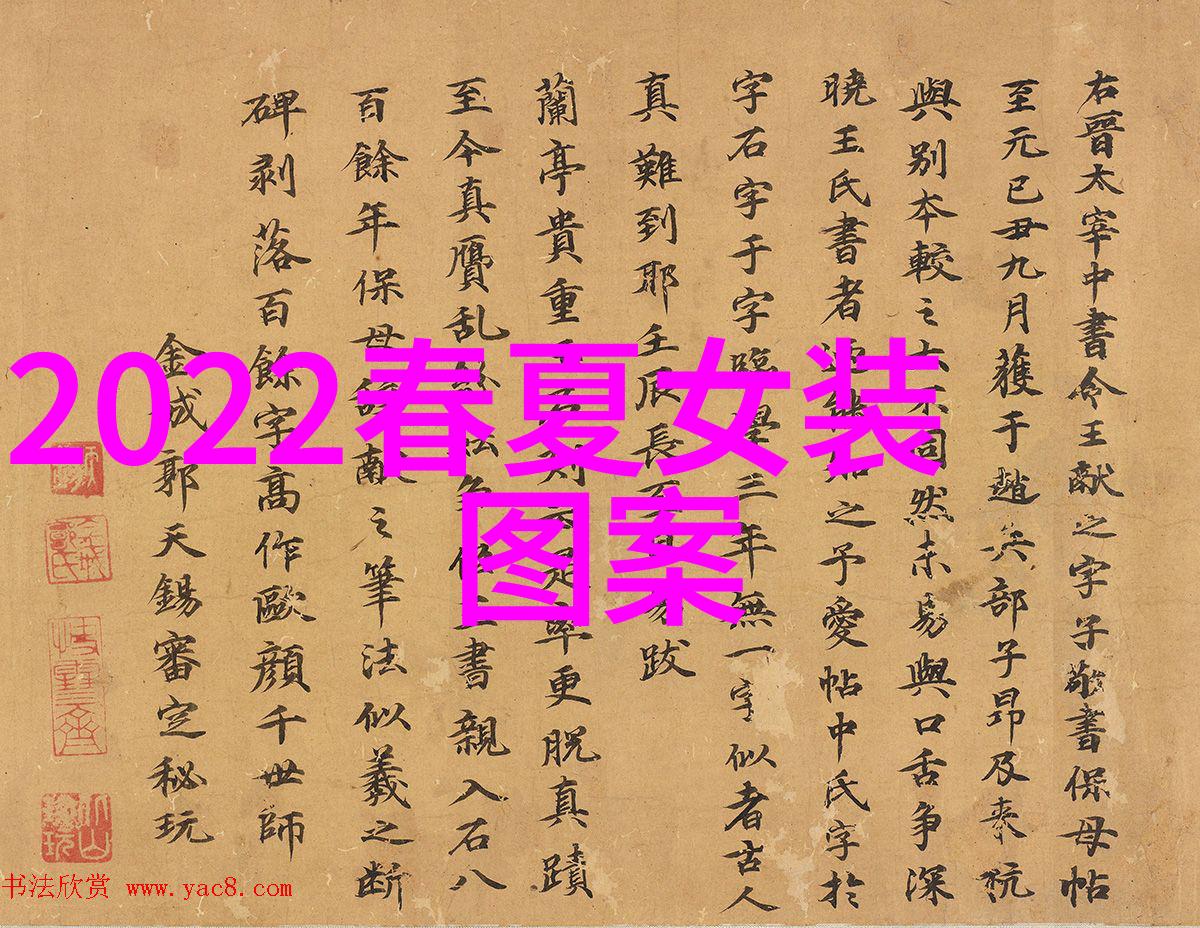 右晉太宰中書令王獻之字子敬書保母帖
至元己丑九月獲于趙兵部子昂及來杭
與別本較之不同然未易與口舌爭深
曉王氏書者之予愛帖中氏字於
字石字于字臨學三年無一字似者古人
真難到耶壬辰長至跋
蘭亭貴重率更脫真蹟
至今真贋乱書親入石八
百餘年保母之筆法似羲之断
碑剥落百餘字高作歐顏千世師
金城郭天錫審定秘玩
2022春夏女装
图案
书法欣赏 www.yac8.com